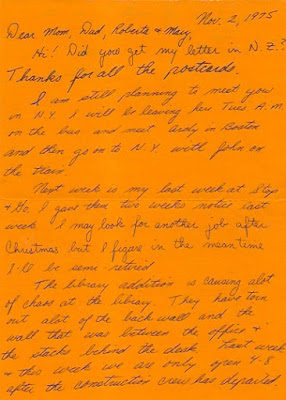 Nov. 2, 1975
Dear Mom, Dad, Roberta & Mary,
Hi! Did you get my letter in N.Z.?
Thanks for all the postcards.
I am still planning to meet you
in N.Y. I will be leaving here Tues. A.M.
on the bus and meet in Boston
and then go on to N.Y. with John on
the train.
Next week is my last week at Stop
& Go. I gave them two weeks notice last
week. I may look for another job after
Christmas but I figure in the meantime
I'll be semi-retired.
The library addition is causing alot
of chaos at the library. They have torn
out alot of the back wall and the
wall that was between the office &
the stacks behind the desk. Last week
& this week we are only open 4-8
after the construction crew has departed.